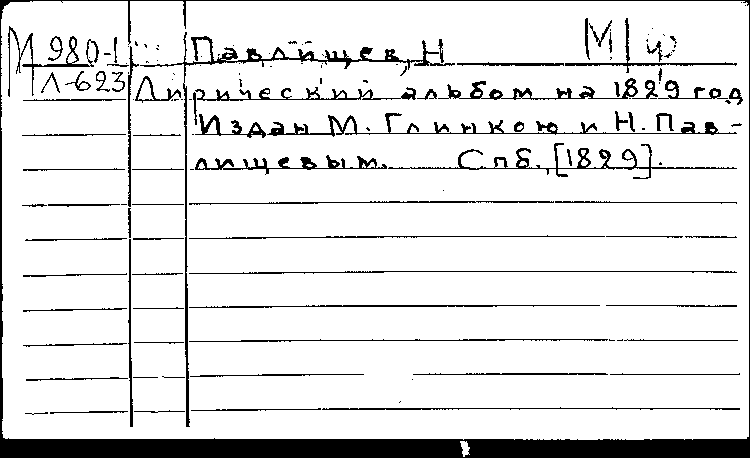 М 980-1 Павлищев, Н М/ф
Л-623 Лирический альбом на 1829 год
Издан М. Глинкою и Н. Пав-
лищевым. Спб., [1829].